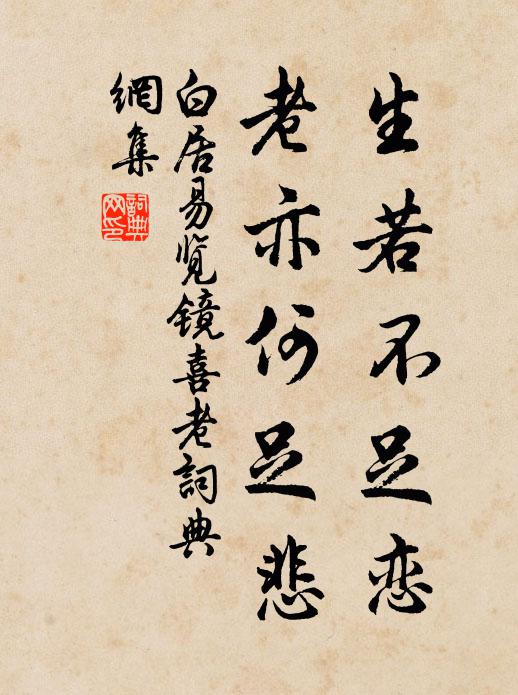 生若不足恋
老亦何足悲
白居易览镜喜老詞典
網集
詞典
网印